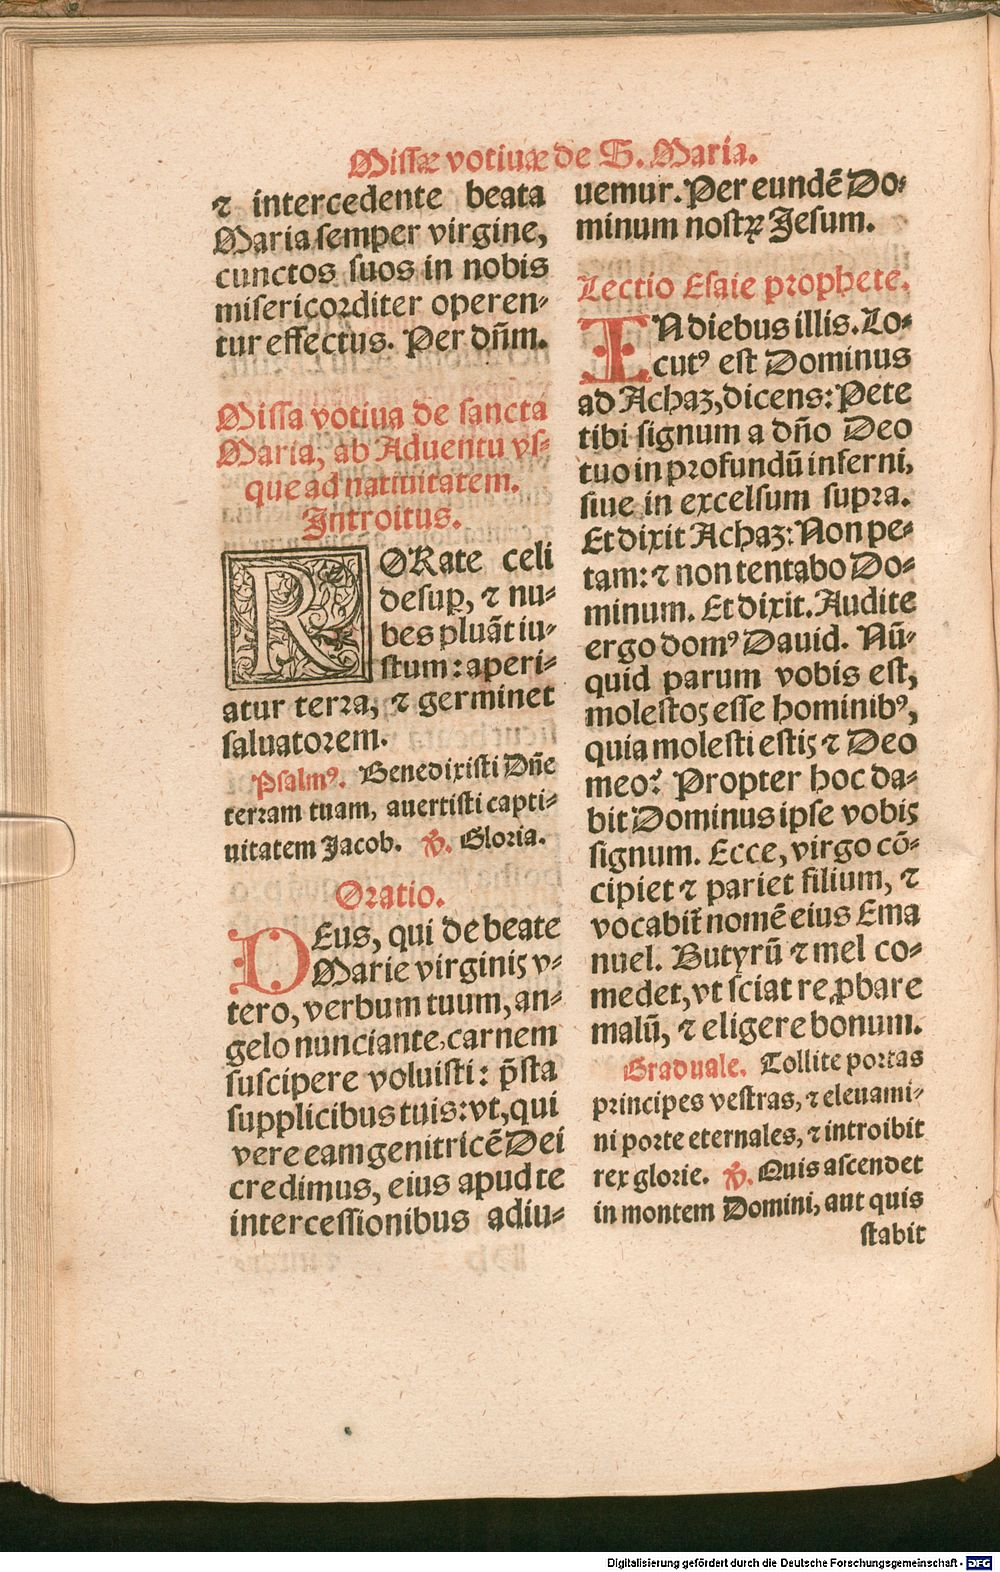 Missæ votiuæ de S. Maria.
⁊ intercedente beata
Maria semper virgine,
cunctos suos in nobis
misericorditer operen-
tur effectus. Per dn̄m.
Missa votiua de sancta
Maria, ab Aduentu vs-
que ad natiuitatem.
Introitus.
RORate celi
desuꝑ, ⁊ nu-
bes pluāt iu-
stum: aperi-
atur terra, ⁊ germinet
saluatorem.
Psalm⁹. Benedixisti Dn̄e
terram tuam, auertisti capti-
uitatem Jacob. ℣. Gloria.
Oratio.
DEus, qui de beate
Marie virginis v-
tero, verbum tuum, an-
gelo nunciante, carnem
suscipere voluisti: p̄sta
supplicibus tuis: vt, qui
vere eam genitricē Dei
credimus, eius apud te
intercessionibus adiu-
uemur. Per eundē Do-
minum nostꝝ Jesum.
Lectio Esaie prophete.
IN diebus illis. Lo-
cut⁹ est Dominus
ad Achaz, dicens: Pete
tibi signum a dn̄o Deo
tuo in profundū inferni,
siue in excelsum supra.
Et dixit Achaz: Non pe-
tam: ⁊ non tentabo Do-
minum. Et dixit. Audite
ergo dom⁹ Dauid. Nū-
quid parum vobis est,
molestos esse hominib⁹,
quia molesti estis ⁊ Deo
meo? Propter hoc da-
bit Dominus ipse vobis
signum. Ecce, virgo cō-
cipiet ⁊ pariet filium, ⁊
vocabit᷑ nomē eius Ema
nuel. Butyrū ⁊ mel co-
medet, vt sciat reꝓbare
malū, ⁊ eligere bonum.
Graduale. Tollite portas
principes vestras, ⁊ eleuami-
ni porte eternales, ⁊ introibit
rex glorie. ℣. Quis ascendet
in montem Domini, aut quis
stabit
Digitalisierung gefördert durch die Deutsche Forschungsgemeinschaft - DFG